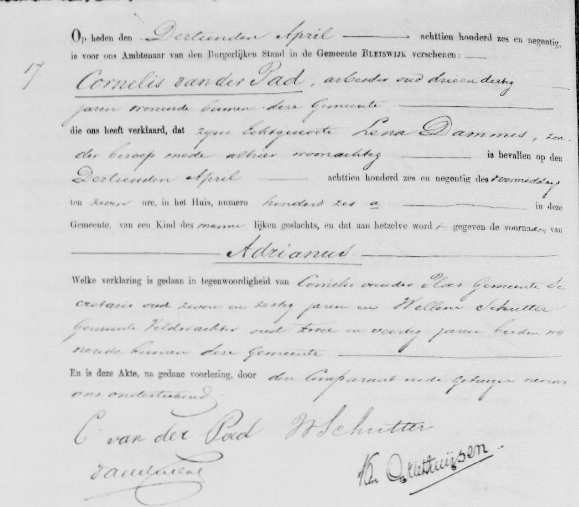 Op heden den Dertienden April achttien honderd zes en negentig,
is voor ons Ambtenaar van den Burgerlijken Stand in de Gemeente BLEISWIJK verschenen:
17
Cornelis van der Pad, arbeider oud drieendertig
jaren wonende binnen deze Gemeente
die ons heeft verklaard, dat zijne Echtgenoote Lena Dammes, zon-
der beroep mede alhier woonachtig is bevallen op den
Dertienden April achttien honderd zes en negentig des voormiddags
ten zeven ure, in het Huis, numero honderd zes a in deze
Gemeente, van een Kind des mannelijken geslachts, en dat aan hetzelve wordt gegeven de voornaam van
Adrianus
Welke verklaring is gedaan in tegenwoordigheid van Cornelis van der Plas Gemeente Se
cretaris oud zeven en zestig jaren en Willem Schutter
Gemeente Veldwachter oud twee en veertig jaren beiden wo
nende binnen deze Gemeente
En is deze Akte, na gedane voorlezing, door den Comparant en de Getuigen nevens
ons onderteekend.
C van der Pad W Schutter